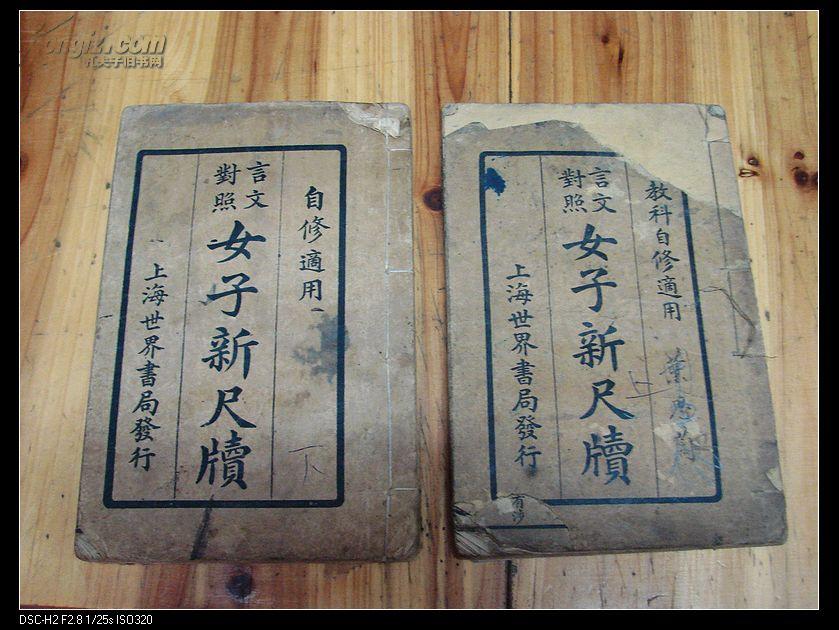 kongfz.com
孔夫子旧书网
自修適用
言文
對照
女子新尺牘
上海世界書局發行
下
教科自修適用
言文
對照
女子新尺牘
上海世界書局發行
上
DSC-H2 F2.8 1/25s ISO320